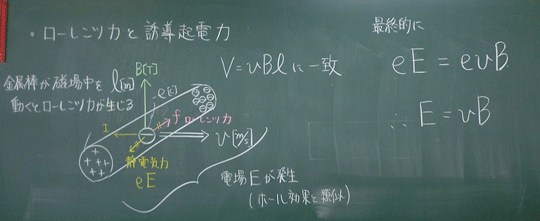 ・ローレンツ力と誘導起電力
金属棒が磁場中を
動くとローレンツ力が生じる
l[m]
B[T]
-e[C]
V=vBlに一致
fローレンツ力
I
v[m/s]
静電気力
eE
電場Eが発生
(ホール効果と類似)
最終的に
eE=evB
∴E=vB